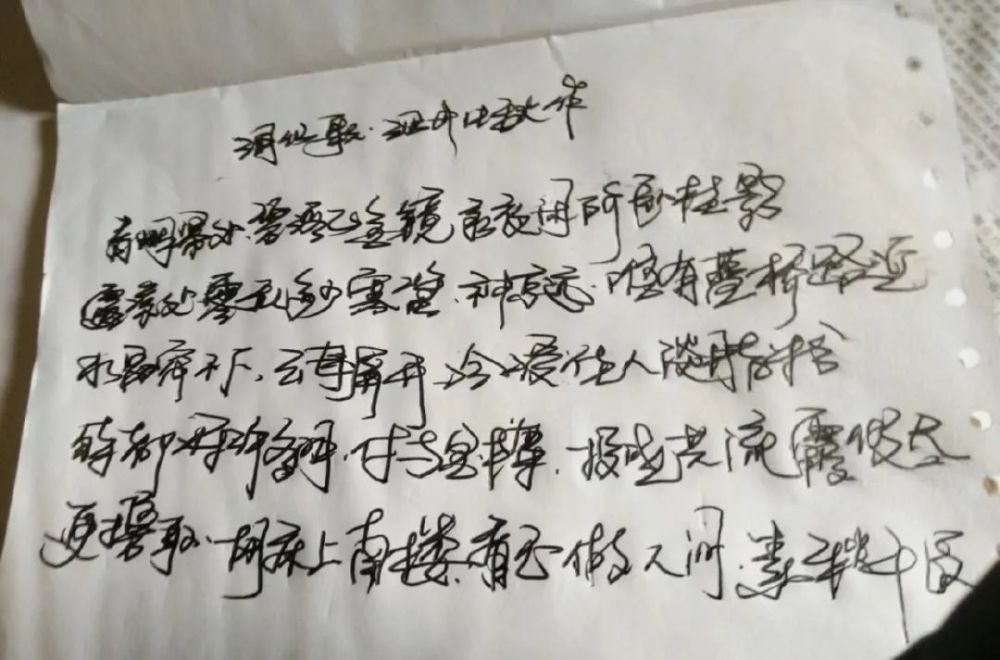 洞仙歌·泗州中秋作
青烟幂处.碧海飞金镜永夜闲阶卧桂影
露凉时零乱多少寒螀.神京远.惟有蓝桥路近
水晶帘不下、云母屏开冷浸佳人淡脂粉
待都将许多明.付与金樽.投晓共流霞倾尽
更携取.胡床上南楼.看玉做人间.素秋千顷